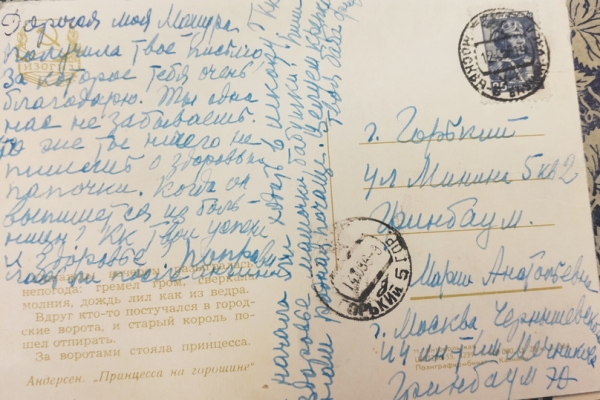 Дорогая моя Монура,
получила твое письмо,
за которое тебя очень
благодарю. Ты одна
нас не забываешь.
же ты ничего не
пишешь о здоровьи
папочки. Когда он
выпишется из боль-
ницы? Кк твои успехи
и здоровье,
ИЗОГИЗ
непогода: гремел гром, сверкала
молния, дождь лил как из ведра.
Вдруг кто-то постучался в город-
ские ворота, и старый король по-
шел отпирать.
За воротами стояла принцесса.
Андерсен. „Принцесса на горошине"
начала ты ходить в школу? Кк
здоровье мамочки, бабушки? Пиши
нам почаще. Целуем крепко
Твоя баба
МОСКВА
ГОРЬКИЙ 5
г. Горький
ул Минина 5 кв 2
Гринбаум.
Марии Анатольевне
г. Москва Чернышевского
Мечникова
Гринбаум Ю